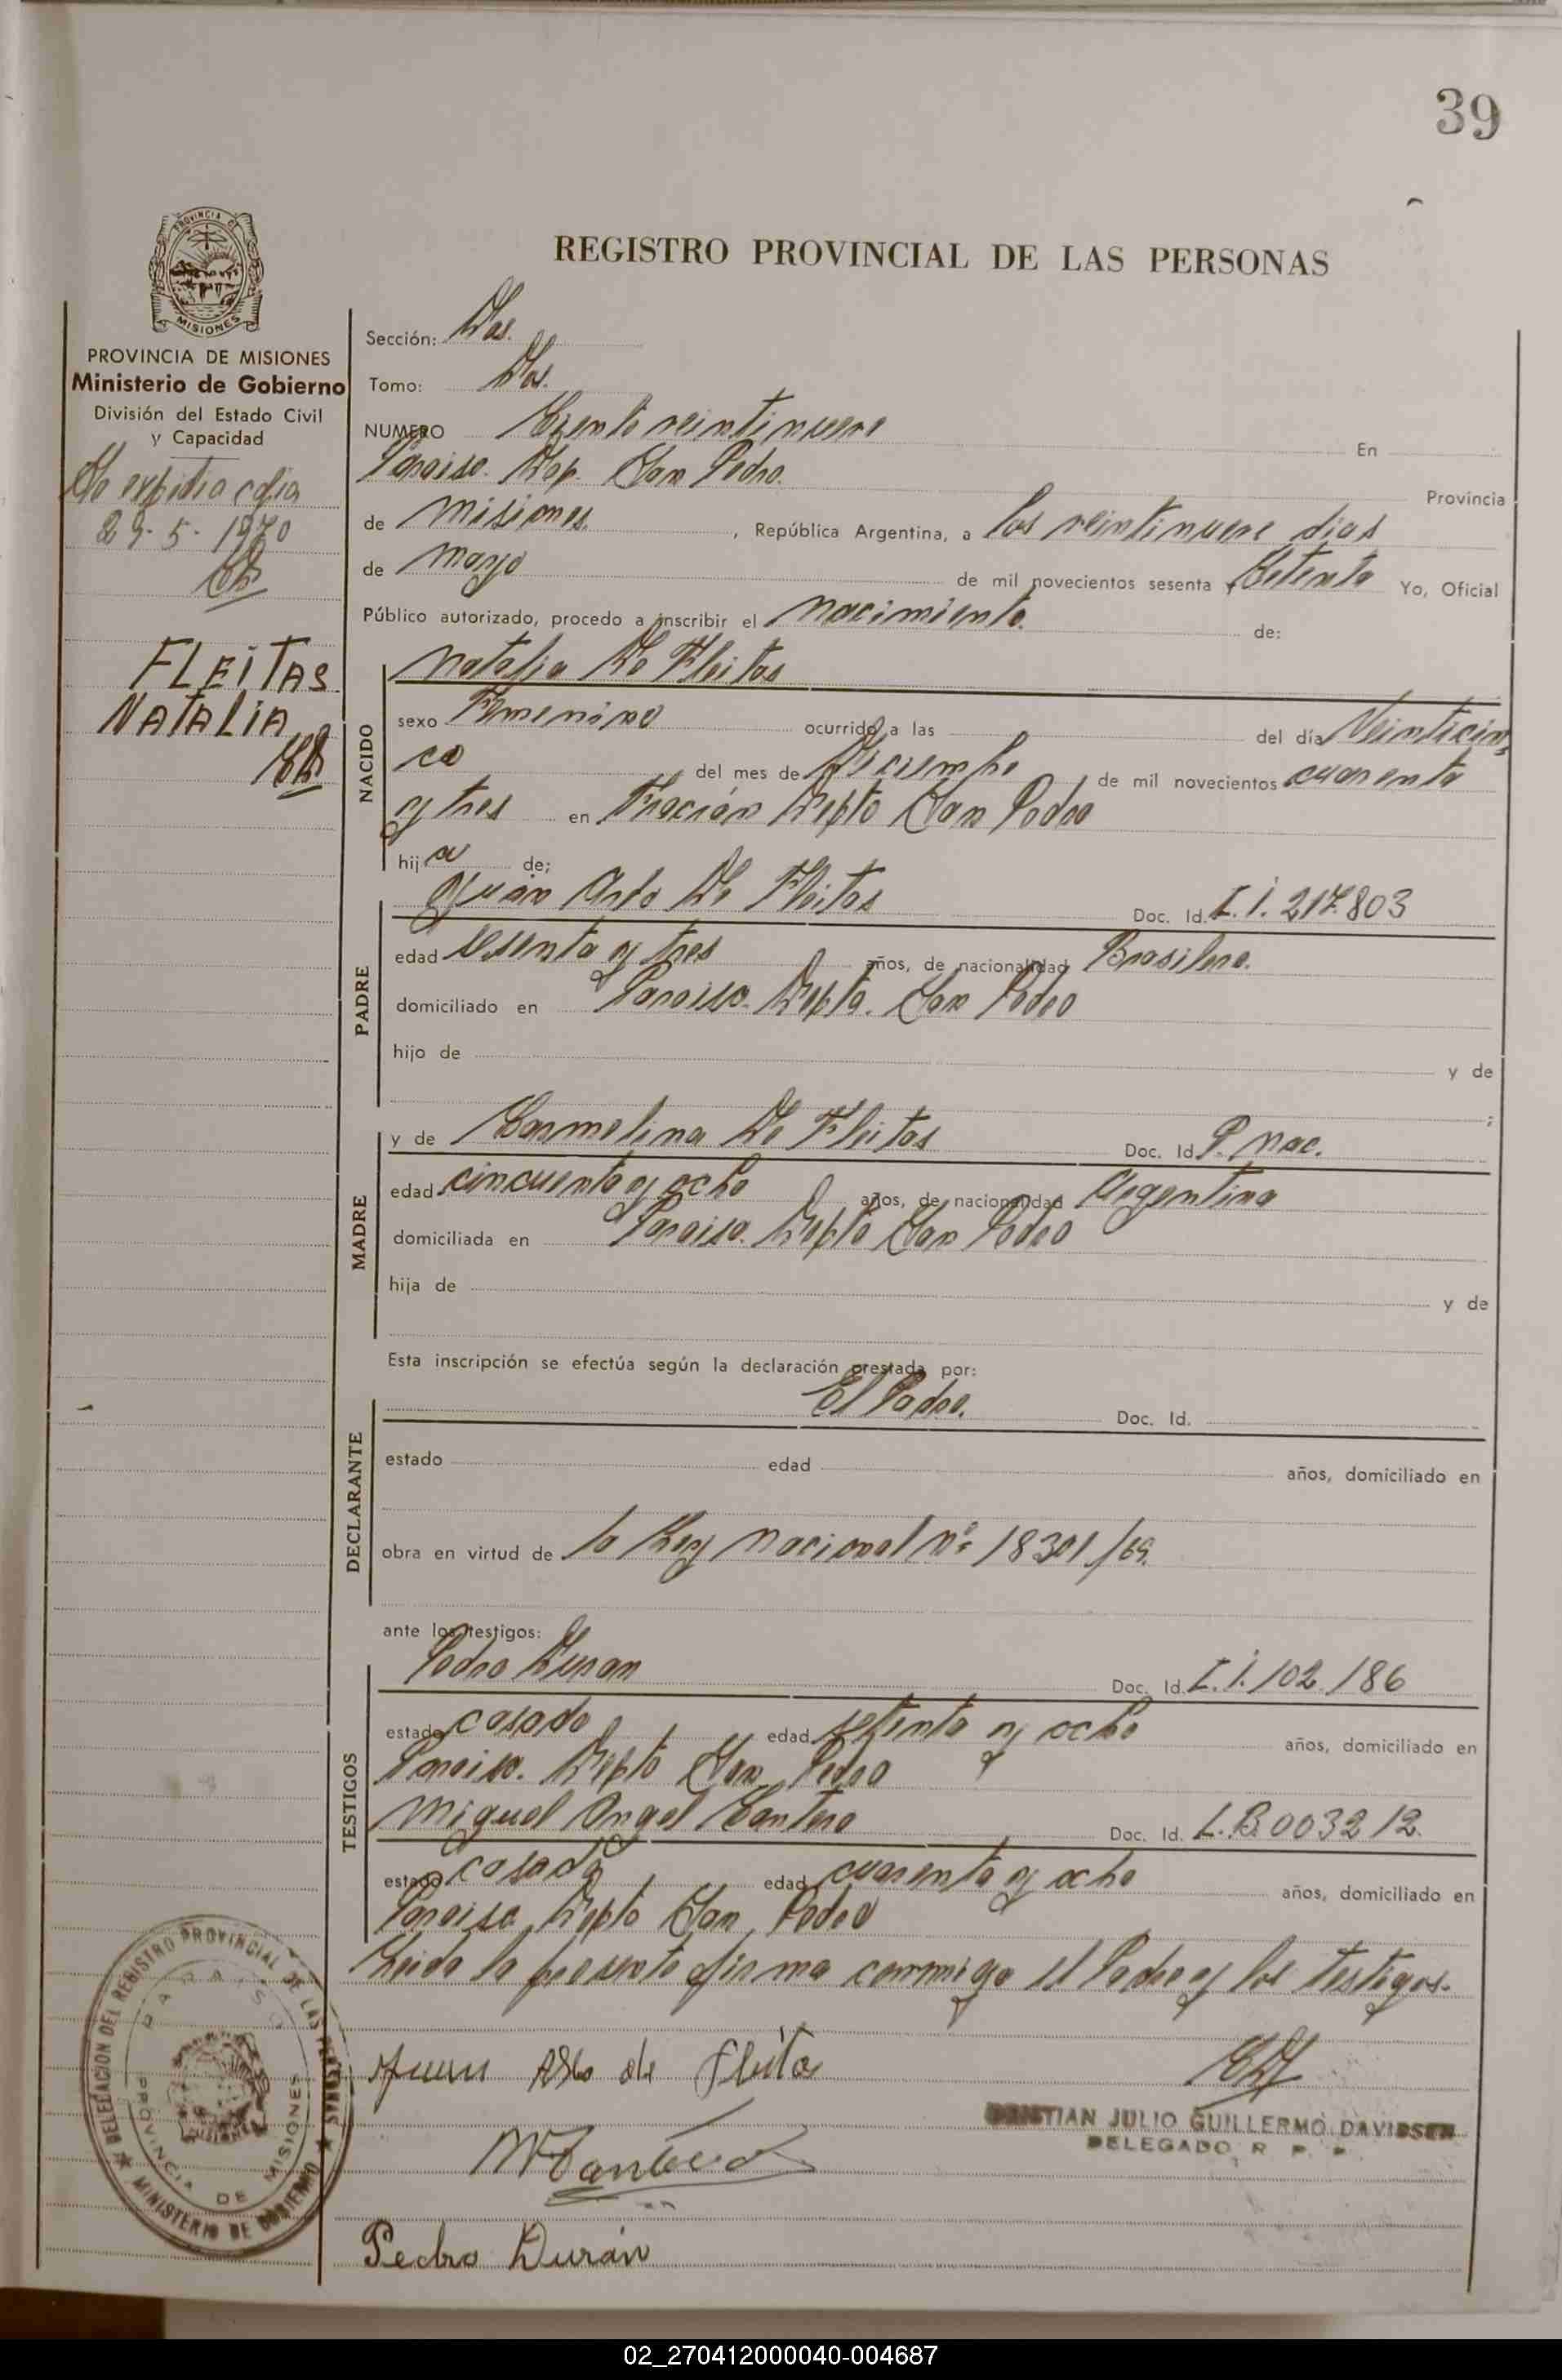 39
PROVINCIA DE
MISIONES
PROVINCIA DE MISIONES
Ministerio de Gobierno
División del Estado Civil
y Capacidad
Se expidio copia
29-5-1970
FLEITAS
NATALIA
REGISTRO PROVINCIAL DE LAS PERSONAS
Sección: Dos.
Tomo: Dos.
NUMERO Ciento veintinueve En
Paraiso. Dep. San Pedro. Provincia
de Misiones, República Argentina, a los veintinueve dias
de mayo de mil novecientos sesenta y Setenta Yo, Oficial
Público autorizado, procedo a inscribir el nacimiento. de:
NACIDO
Natalia De Fleitas
sexo Femenino ocurrido a las del día Veinticin-
co del mes de Diciembre de mil novecientos cuarenta
y tres en Fracrán Depto San Pedro
hija de;
PADRE
Juan Asto De Fleitas Doc. Id. C.I. 217.803
edad sesenta y tres años, de nacionalidad Brasilera.
domiciliado en Paraiso. Depto. San Pedro
hijo de y de
;
MADRE
y de Carmelina De Fleitas Doc. Id P. nac.
edad cincuenta y ocho años, de nacionalidad Argentina
domiciliada en Paraiso. Depto San Pedro
hija de y de
Esta inscripción se efectúa según la declaración prestada por:
DECLARANTE
El Padre. Doc. Id.
estado edad años, domiciliado en
obra en virtud de la Ley Nacional Nº 18301/69.
ante los testigos:
TESTIGOS
Pedro Duran Doc. Id. C.I. 102.186
estado casado edad setenta y ocho años, domiciliado en
Paraiso. Depto San Pedro
Miguel Angel Cantero Doc. Id. L.B. 003212.
estado casado edad cuarenta y ocho años, domiciliado en
Paraiso Depto San Pedro
Leida la presente firma conmigo el Padre y los testigos.
Juan de Fleitas
CRISTIAN JULIO GUILLERMO DAVIDSEN
DELEGADO R. P. P.
MCantero
Pedro Durán
DELEGACION DEL REGISTRO PROVINCIAL DE LAS PERSONAS
MINISTERIO DE GOBIERNO
PARAISO
PROVINCIA DE MISIONES
02_270412000040-004687